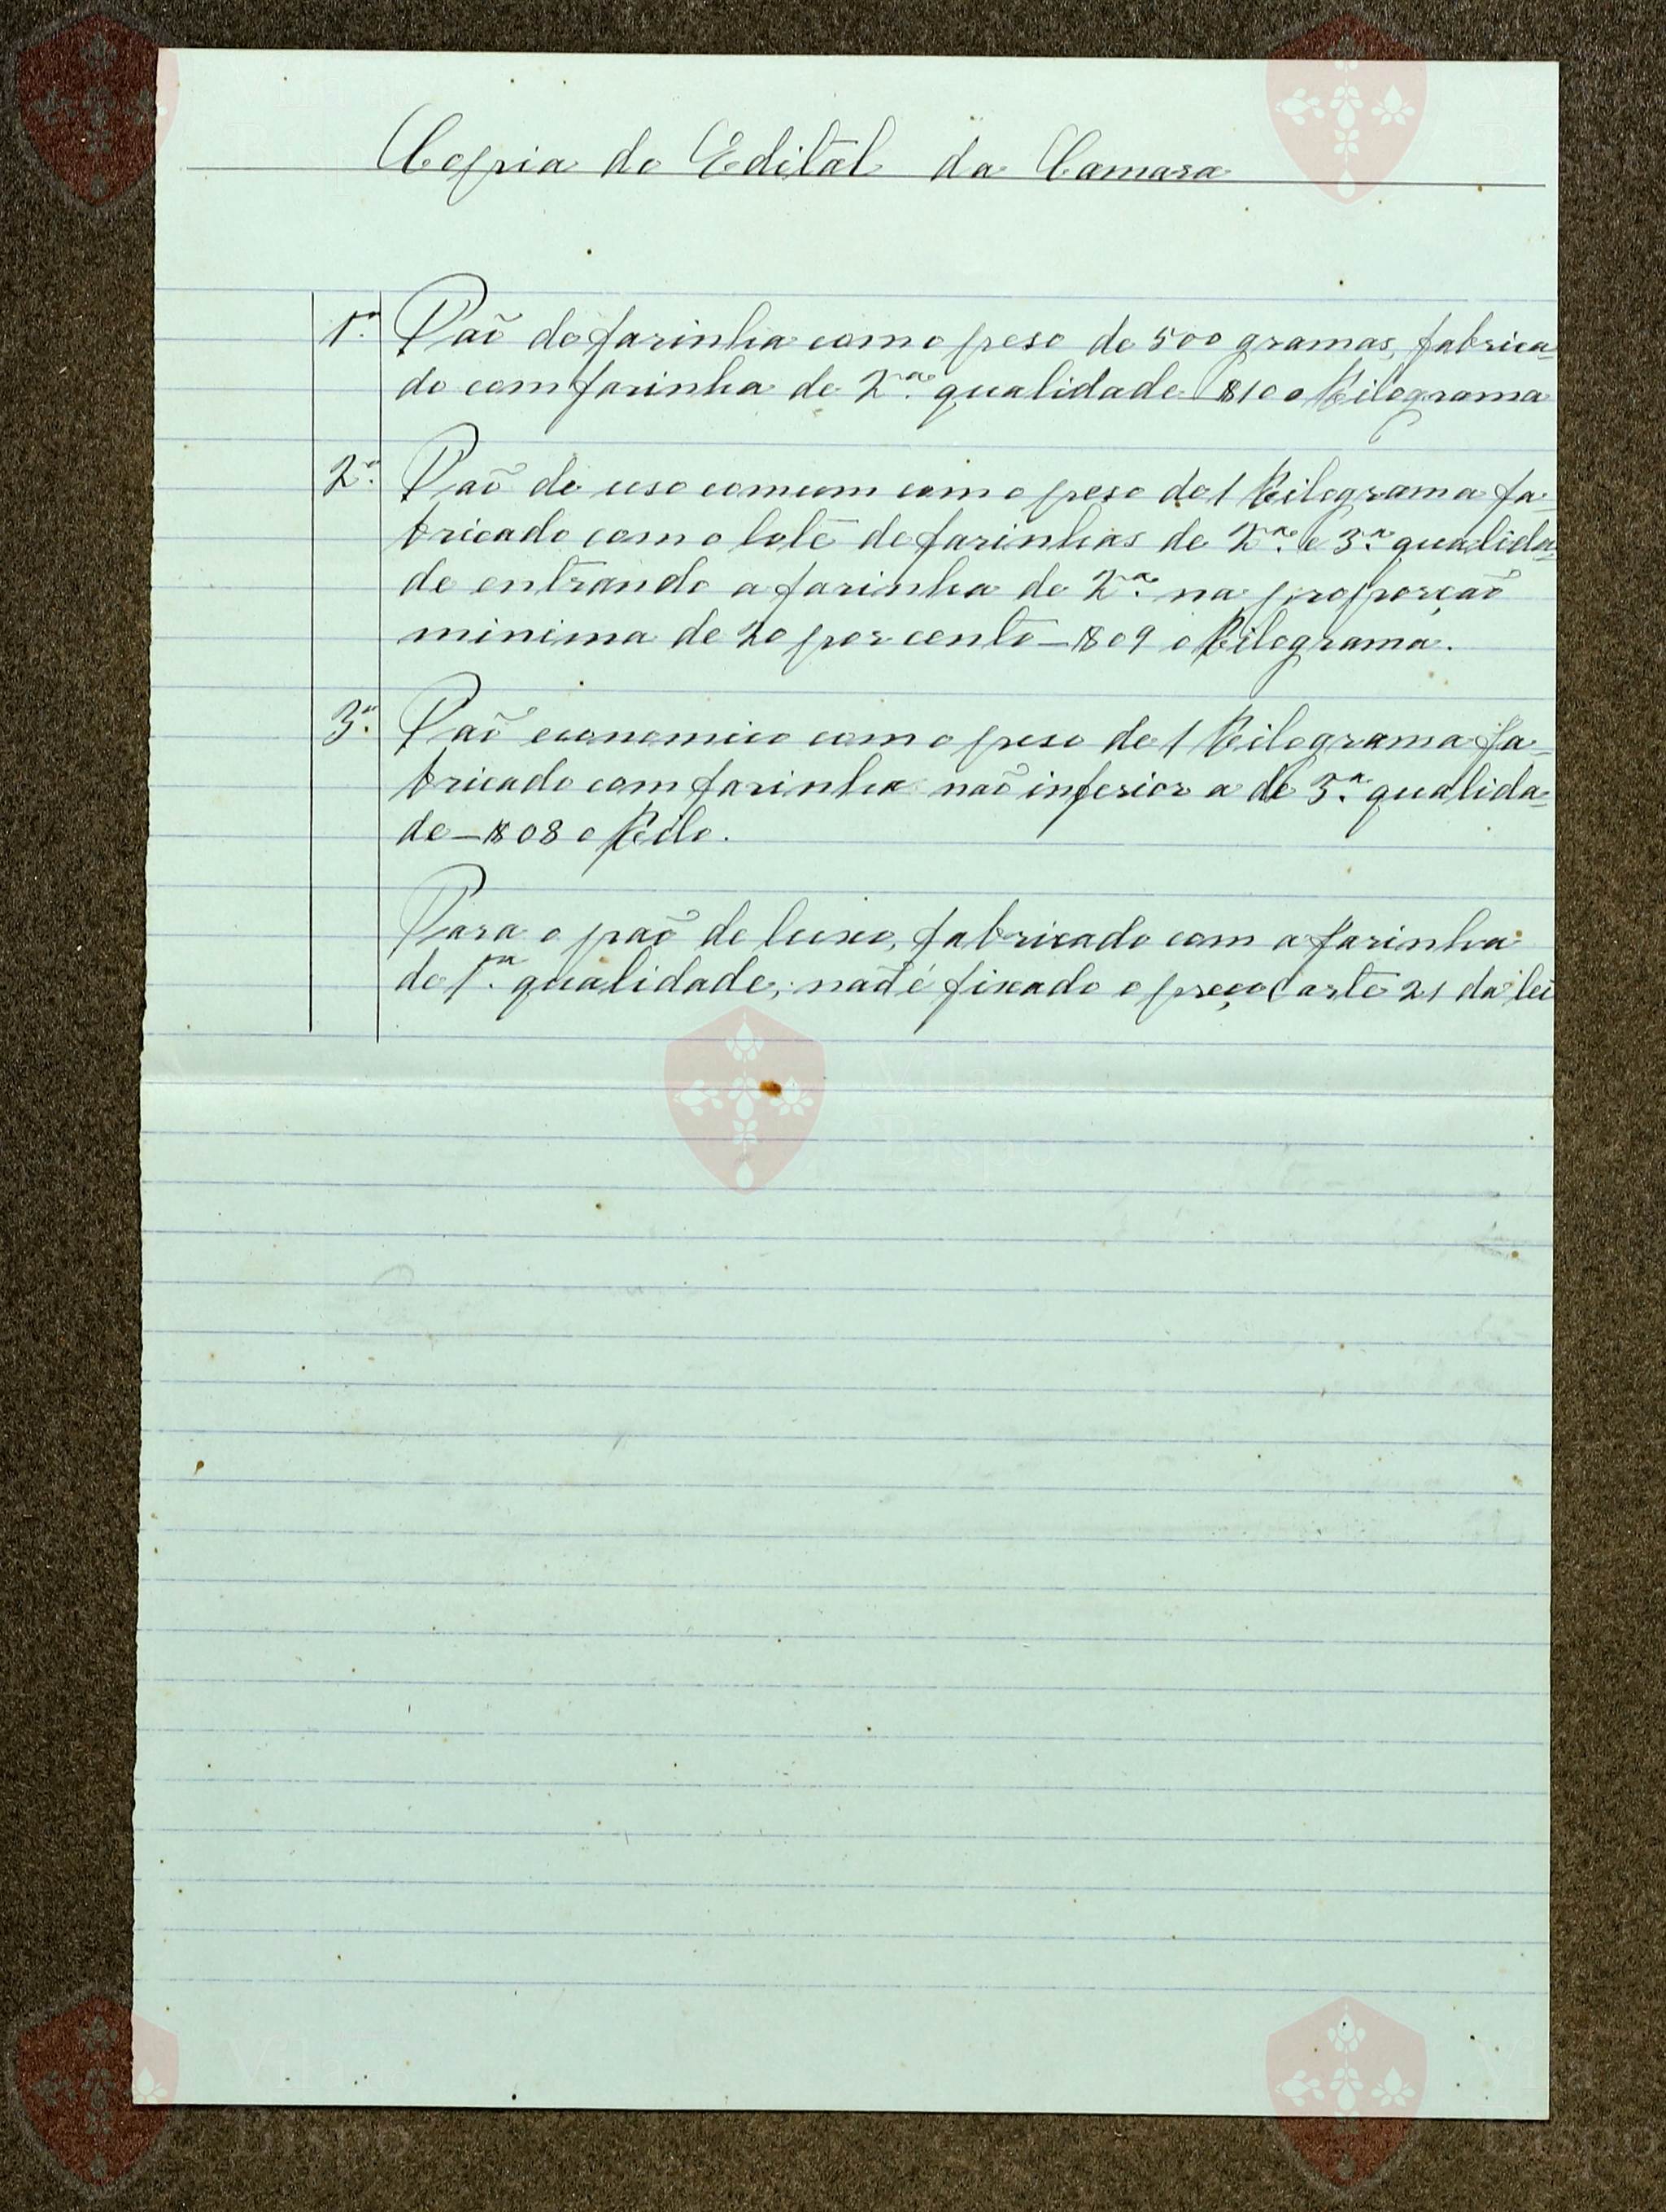 Copia do Edital da Camara
1ª Paõ de farinha com o peso de 500 gramas, fabrica-
do com farinha de 2ª qualidade $10 o Kilograma
2ª Paõ de uso comum com o peso de 1 Kilograma fa-
bricado com o lote de farinhas de 2ª e 3ª qualida-
de entrando a farinha de 2ª na proporção
minima de 20 por cento - $09 o Kilograma.
3ª Paõ economico com o peso de 1 Kilograma fa-
bricado com farinha naõ inferior a de 3ª qualida-
de - $08 o Kilo.
Para o paõ de luxo, fabricado com a farinha
de 1ª qualidade, naõ é fixado o preço (arte 21 da lei
Vila do
Bispo